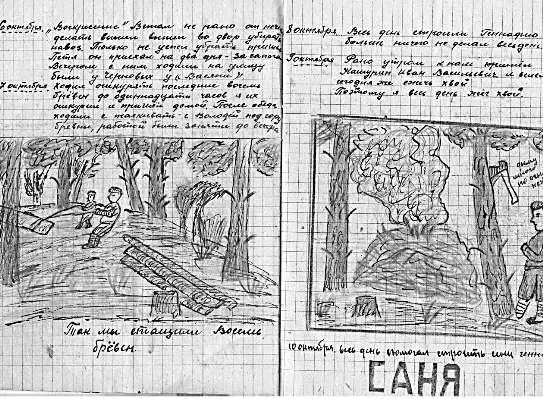 6 октября, "Воскресение" Встал не рано от нечего
делать вышел вышел во двор убирать
навоз. Только не успел убрать пришёл
Петя он приехал на два дня - за
Вечером с ним ходили на улицу
были у Черновых у (Васени)
7 октября ходил ошкурять последние восемь
брёвен до одиннадцати часов я их
ошкурил и пришёл домой. После обеда
ходили стаскивать с Володей под гору
брёвна, работой были заняты до вечера
Так мы стащили Восемь
брёвен.
8 октября. Весь день строили Геннадию
больше ничего не делал весь день.
9 октября Рано утром к нам пришёл
Кашурин Иван Васильевич и велел
жечь хвою.
Поэтому я весь день жёг хвою.
10 октября, весь день помогал строить
САНЯ